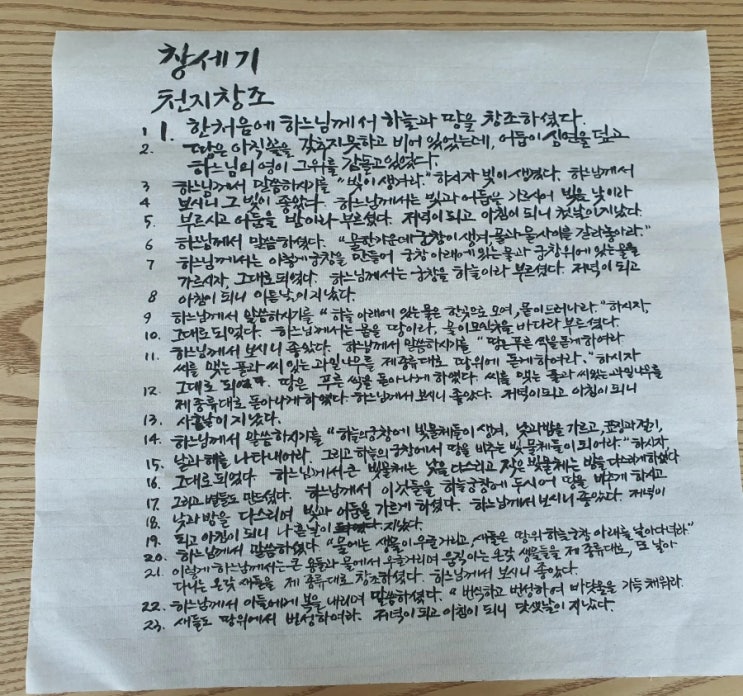 창세기
천지창조
1 1. 한처음에 하느님께서 하늘과 땅을 창조하셨다.
2. 땅은 아직 꼴을 갖추지 못하고 비어 있었는데, 어둠이 심연을 덮고
하느님의 영이 그 위를 감돌고 있었다.
3 하느님께서 말씀하시기를 "빛이 생겨라." 하시자 빛이 생겼다. 하느님께서
4 보시니 그 빛이 좋았다. 하느님께서는 빛과 어둠을 가르시어 빛을 낮이라
5. 부르시고 어둠을 밤이라 부르셨다. 저녁이 되고 아침이 되니 첫날이 지났다.
6 하느님께서 말씀하셨다. "물 한가운데 궁창이 생겨, 물과 물 사이를 갈라놓아라."
7 하느님께서는 이렇게 궁창을 만들어 궁창 아래에 있는 물과 궁창 위에 있는 물을
가르시자, 그대로 되었다. 하느님께서는 궁창을 하늘이라 부르셨다. 저녁이 되고
8 아침이 되니 이튿날이 지났다.
9 하느님께서 말씀하시기를 "하늘 아래에 있는 물은 한곳으로 모여, 뭍이 드러나라." 하시자,
10. 그대로 되었다. 하느님께서는 뭍을 땅이라, 물이 모인 곳을 바다라 부르셨다.
11. 하느님께서 보시니 좋았다. 하느님께서 말씀하시기를 "땅은 푸른 싹을 돋게 하여라
씨를 맺는 풀과 씨 있는 과일나무를 제 종류대로 땅 위에 돋게 하여라." 하시자
12. 그대로 되었다. 땅은 푸른 싹을 돋아나게 하였다. 씨를 맺는 풀과 씨 있는 과일나무를
제 종류대로 돋아나게 하였다. 하느님께서 보시니 좋았다. 저녁이 되고 아침이 되니
13. 사흗날이 지났다.
14. 하느님께서 말씀하시기를 "하늘의 궁창에 빛물체들이 생겨, 낮과 밤을 가르고, 표징과 절기,
15. 날과 해를 나타내어라. 그리고 하늘의 궁창에서 땅을 비추는 빛물체들이 되어라." 하시자,
16. 그대로 되었다 하느님께서 큰 빛물체는 낮을 다스리고 작은 빛물체는 밤을 다스리게 하셨다
17. 그리고 별들도 만드셨다. 하느님께서 이것들을 하늘 궁창에 두시어 땅을 비추게 하시고
18. 낮과 밤을 다스리며 빛과 어둠을 가르게 하셨다. 하느님께서 보시니 좋았다. 저녁이
19. 되고 아침이 되니 나흗날이 지났다.
20. 하느님께서 말씀하셨다. "물에는 생물이 우글거리고, 새들은 땅 위 하늘 궁창 아래를 날아다녀라."
21. 이렇게 하느님께서는 큰 용들과 물에서 우글거리며 움직이는 온갖 생물들을 제 종류대로, 또 날아
다니는 온갖 새들을 제 종류대로 창조하셨다. 하느님께서 보시니 좋았다.
22. 하느님께서 이들에게 복을 내리며 말씀하셨다. "번식하고 번성하여 바닷물을 가득 채워라.
23. 새들도 땅 위에서 번성하여라. 저녁이 되고 아침이 되니 닷샛날이 지났다.